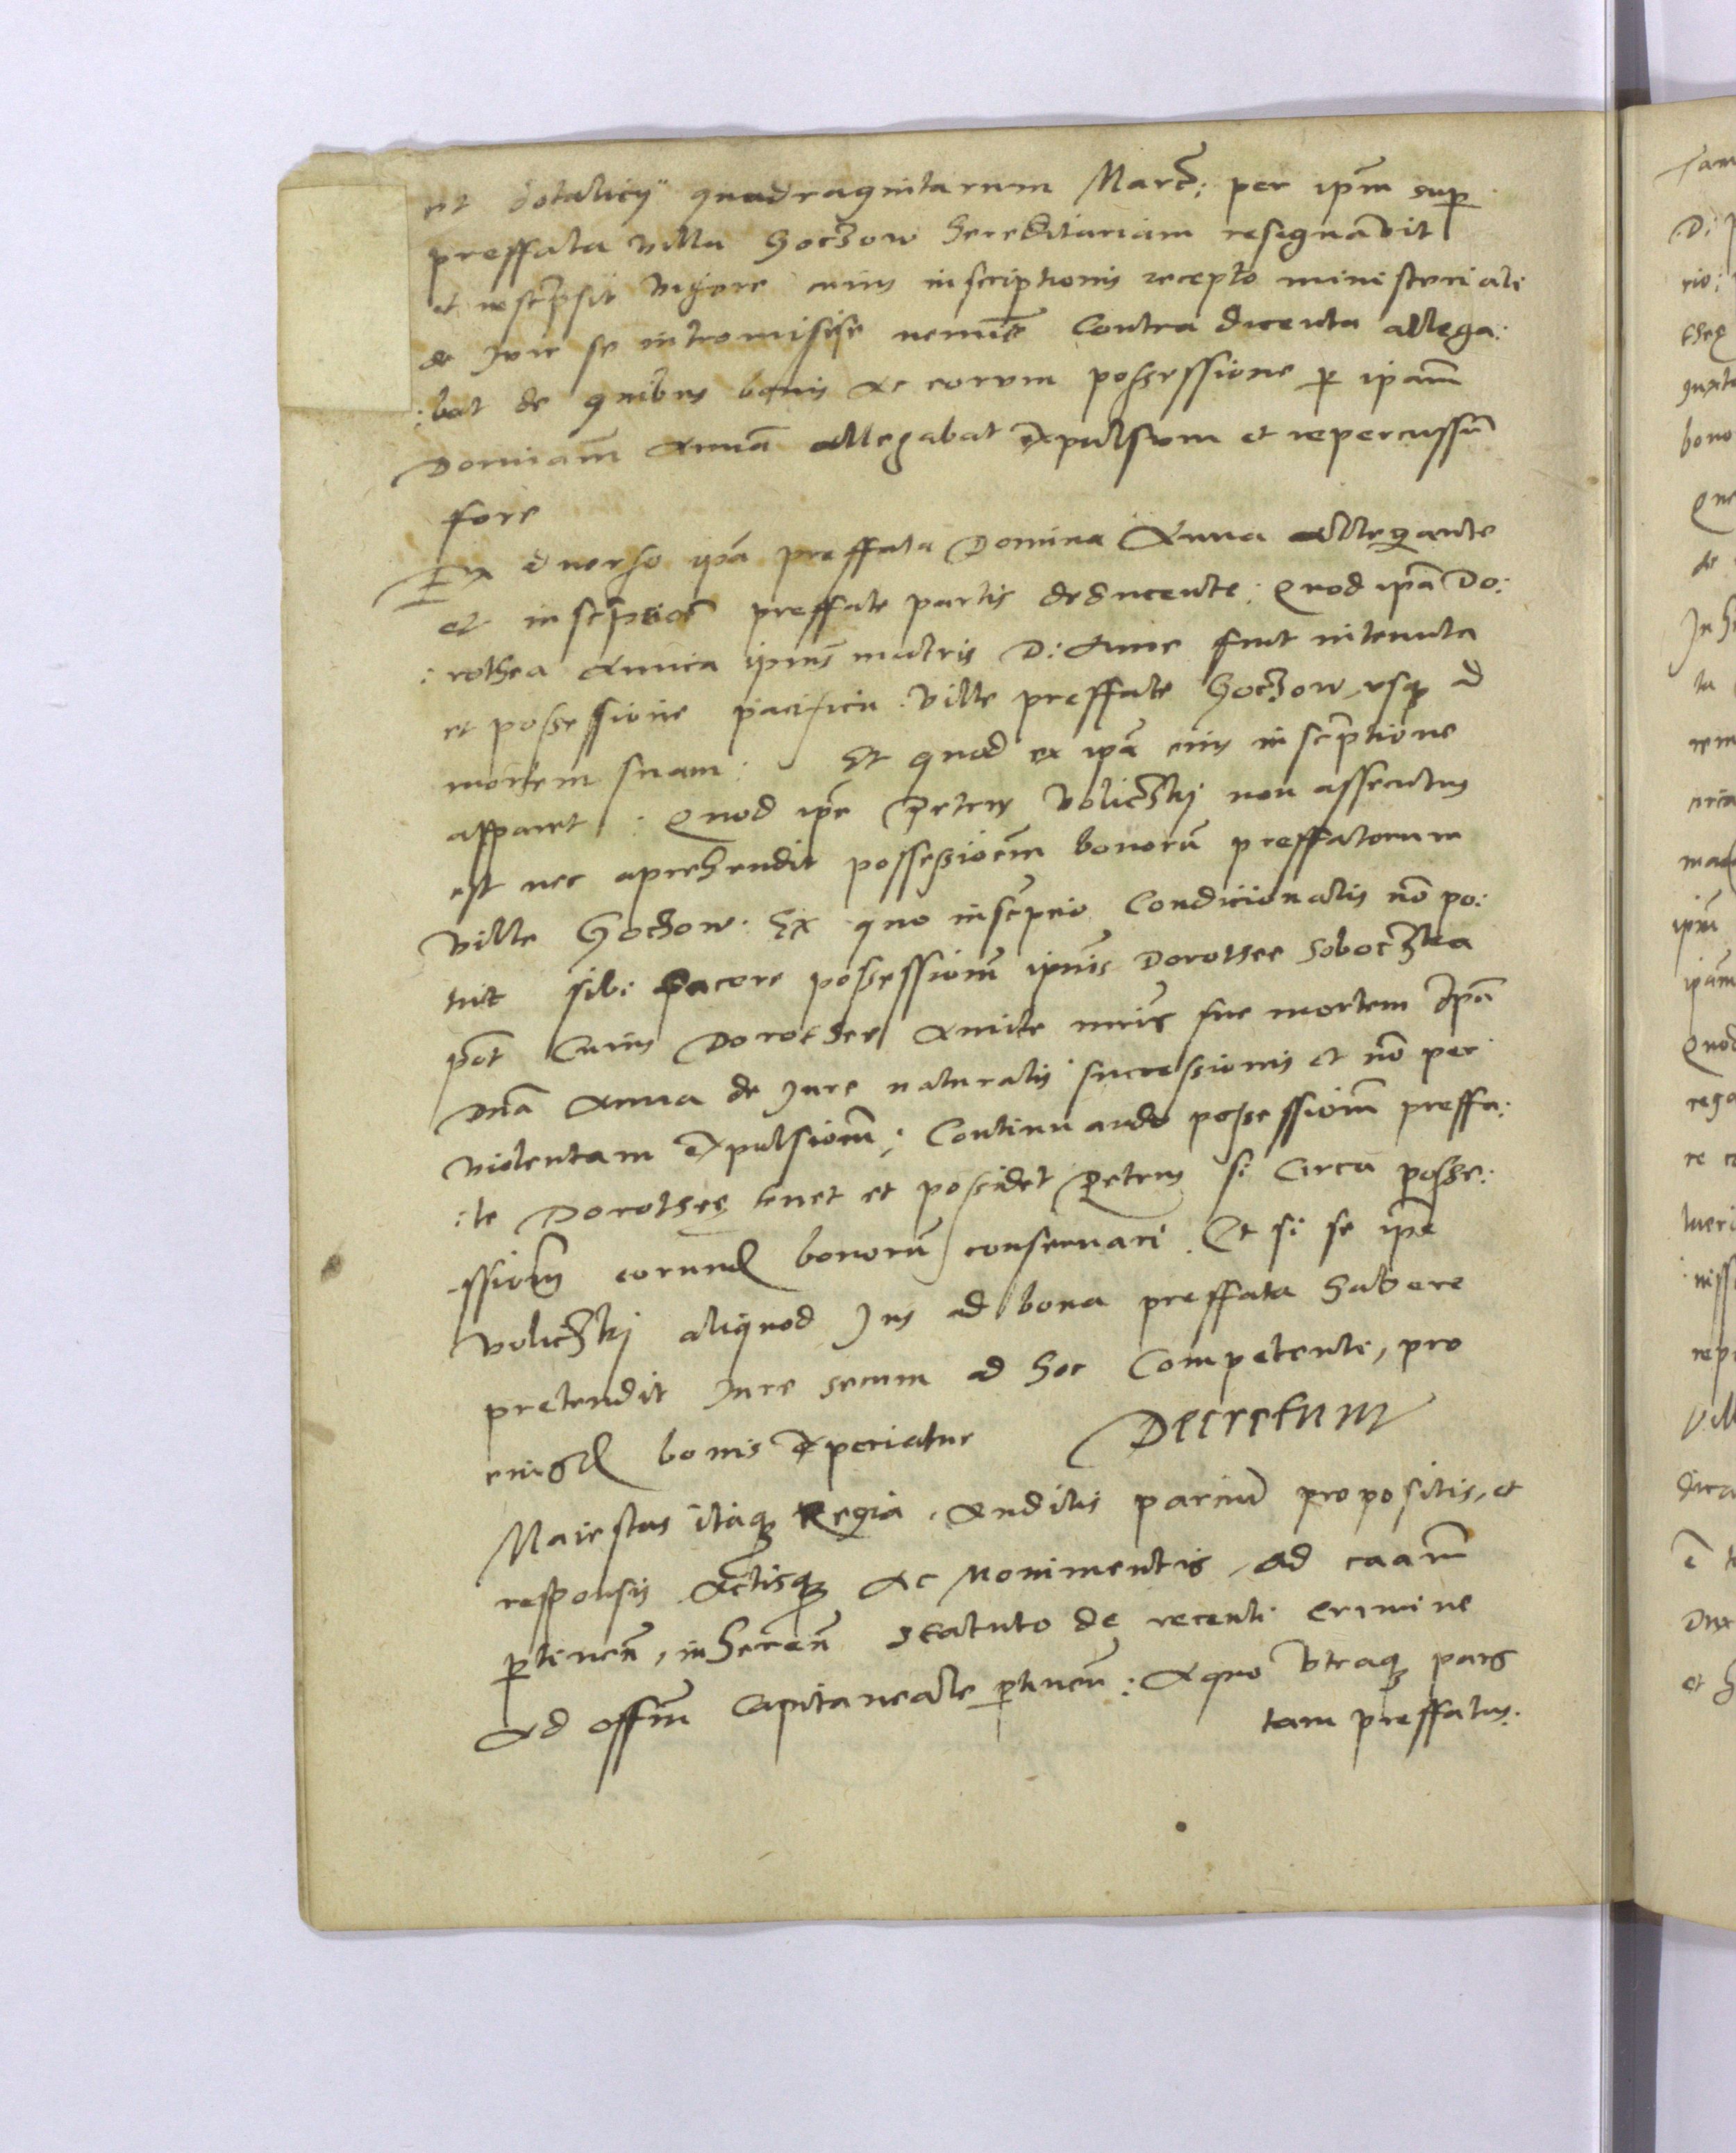 et dotalicÿ quadragintarum Marc̃: per ipm̃ sup
preffata villa Goczow hereditariam resignavit
et inscripsit vigore cuius inscriptionis recepto ministeriali
de Jure se intromisisse nemine Contra dicente allega:
:bat de quibus bonis ac eorum possessione p ipam̃
Dominam̃ Annã allegabat Expulsum et repercussũ
fore
Ex adverso ipã preffata Domina Anna allegante
et inscriptioẽ preffate partis deducente: Quod ipã Do:
:rothea Amita ipius̃ matris D: Anne fuit in tenuta
et possessione pacifica ville preffate Goczow, vsq ad
mortem suam: Et quod ex ipã eius inscriptione
apparet: Quod ipẽ Petrus Voliczkj non assecutus
est nec aprehendit possessioẽm bonorũ preffatorum
ville Goczow. Ex quo inscriptio Condicionalis nõ po:
tuit sibi facere possessionẽ ipius̃ Dorothee Soboczka
põt Cuius Dorothee Amite sue mortem Ipã
Dnã Anna de Jure naturalis successionis et nõ per
violentam Expulsionẽ; Continuando possessionẽ preffa:
:te Dorothee tenet et possidet Petrus si Circa posse:
ssionẽ eorund bonorũ conservari Et si se ipẽ
Voliczkj aliquod Jus ad bona preffata habere
pretendit Jure secum ad hoc Competenti, pro
eiusd bonis Experiatur Decretum
Maiestas itaq Regia, Auditis parciũ propositis, et
responsis Actisq ac Monimentis, ad caam̃
ptineñ, inhereñ Statuto de recenti Crimine
Ad officiũ Capitaneale ptineñ: A quo Vtraq pars
tam preffatus.